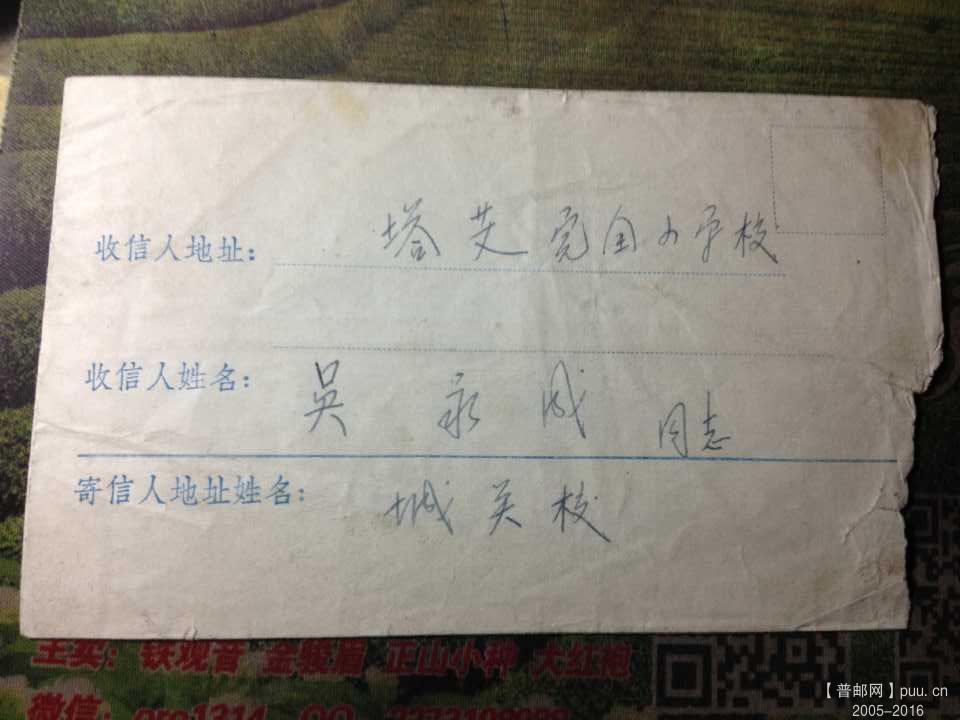 收信人地址： 塔艾完全小学校
收信人姓名： 吴永成 同志
寄信人地址姓名： 城关校
主卖：铁观音 金骏眉 正山小种 大红袍
微信： QQ
【普邮网】puu.cn
2005-2016